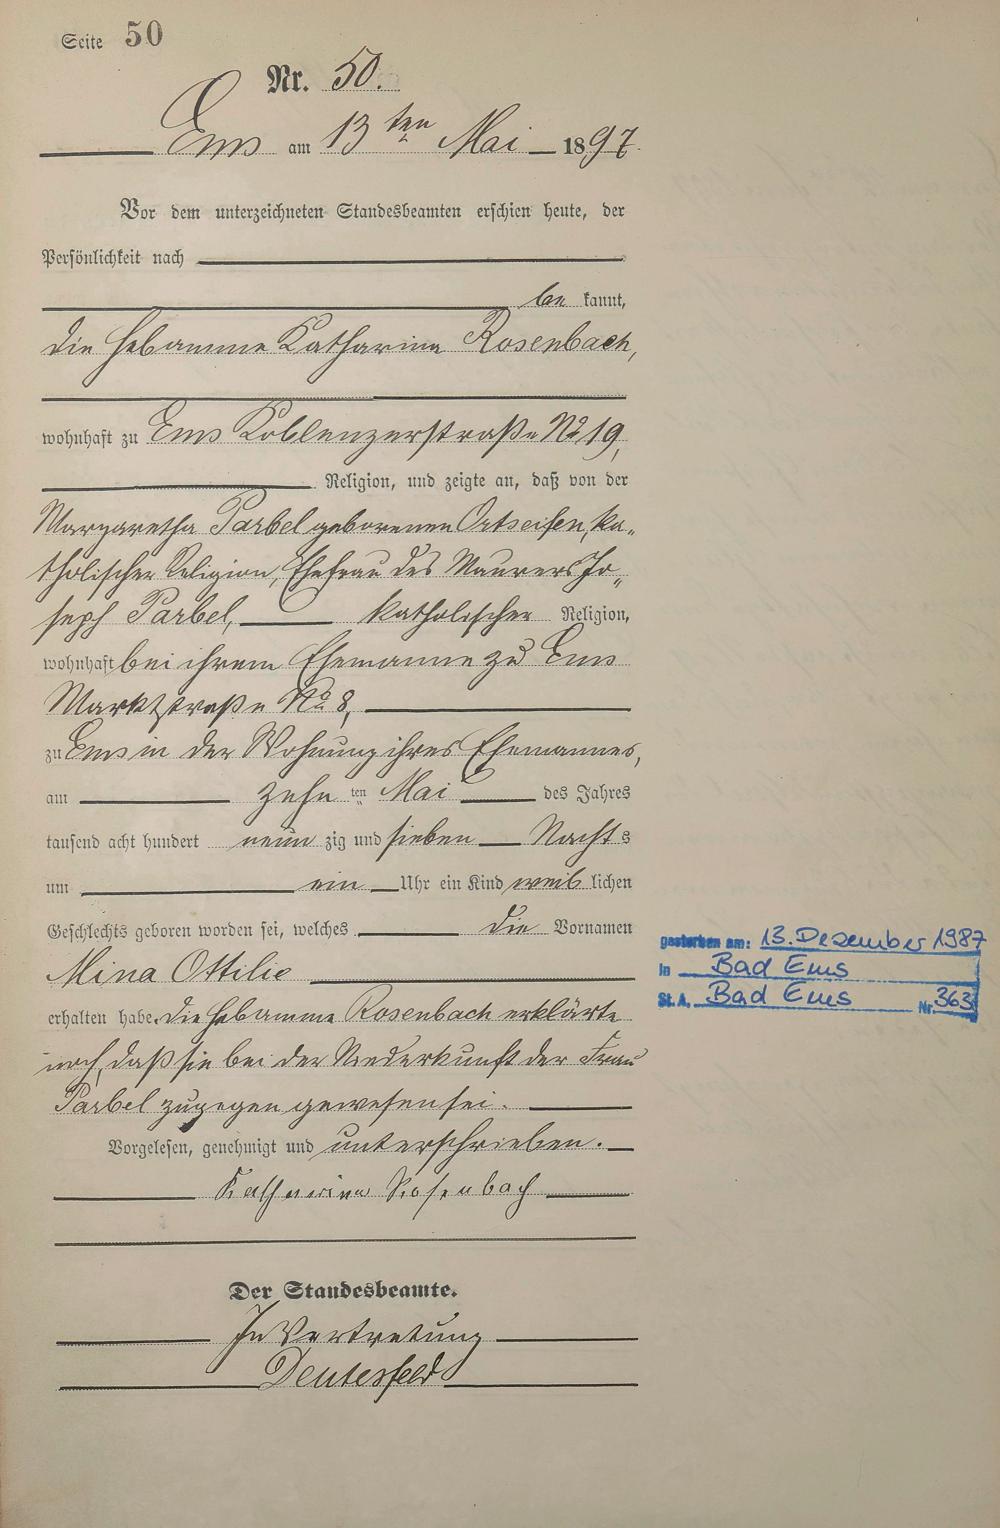 Seite 50
Nr. 50.
Ems am 13ten Mai 1897.
Vor dem unterzeichneten Standesbeamten erschien heute, der
Persönlichkeit nach
be kannt,
die Hebamme Katharina Rosenbach,
wohnhaft zu Ems Koblenzerstraße No 19,
Religion, und zeigte an, daß von der
Margaretha Parbel geborenen Ortseifen, ka„
tholischer Religion, Ehefrau des Maurers Jo„
seph Parbel, katholischer Religion,
wohnhaft bei ihrem Ehemanne zu Ems
Marktstraße No 8,
zu Ems in der Wohnung ihres Ehemannes,
am zehn ten Mai des Jahres
tausend acht hundert neun zig und sieben Nachts
um ein Uhr ein Kind weib lichen
Geschlechts geboren worden sei, welches die Vornamen
Mina Ottilie
erhalten habe. Die Hebamme Rosenbach erklärte
noch, daß sie bei der Niederkunft der Frau
Parbel zugegen gewesen sei.
Vorgelesen, genehmigt und unterschrieben.
Katharina Rosenbach
Der Standesbeamte.
In Vertretung
Deutesfeld
gestorben am: 13. Dezember 1987
in Bad Ems
St. A. Bad Ems Nr. 363